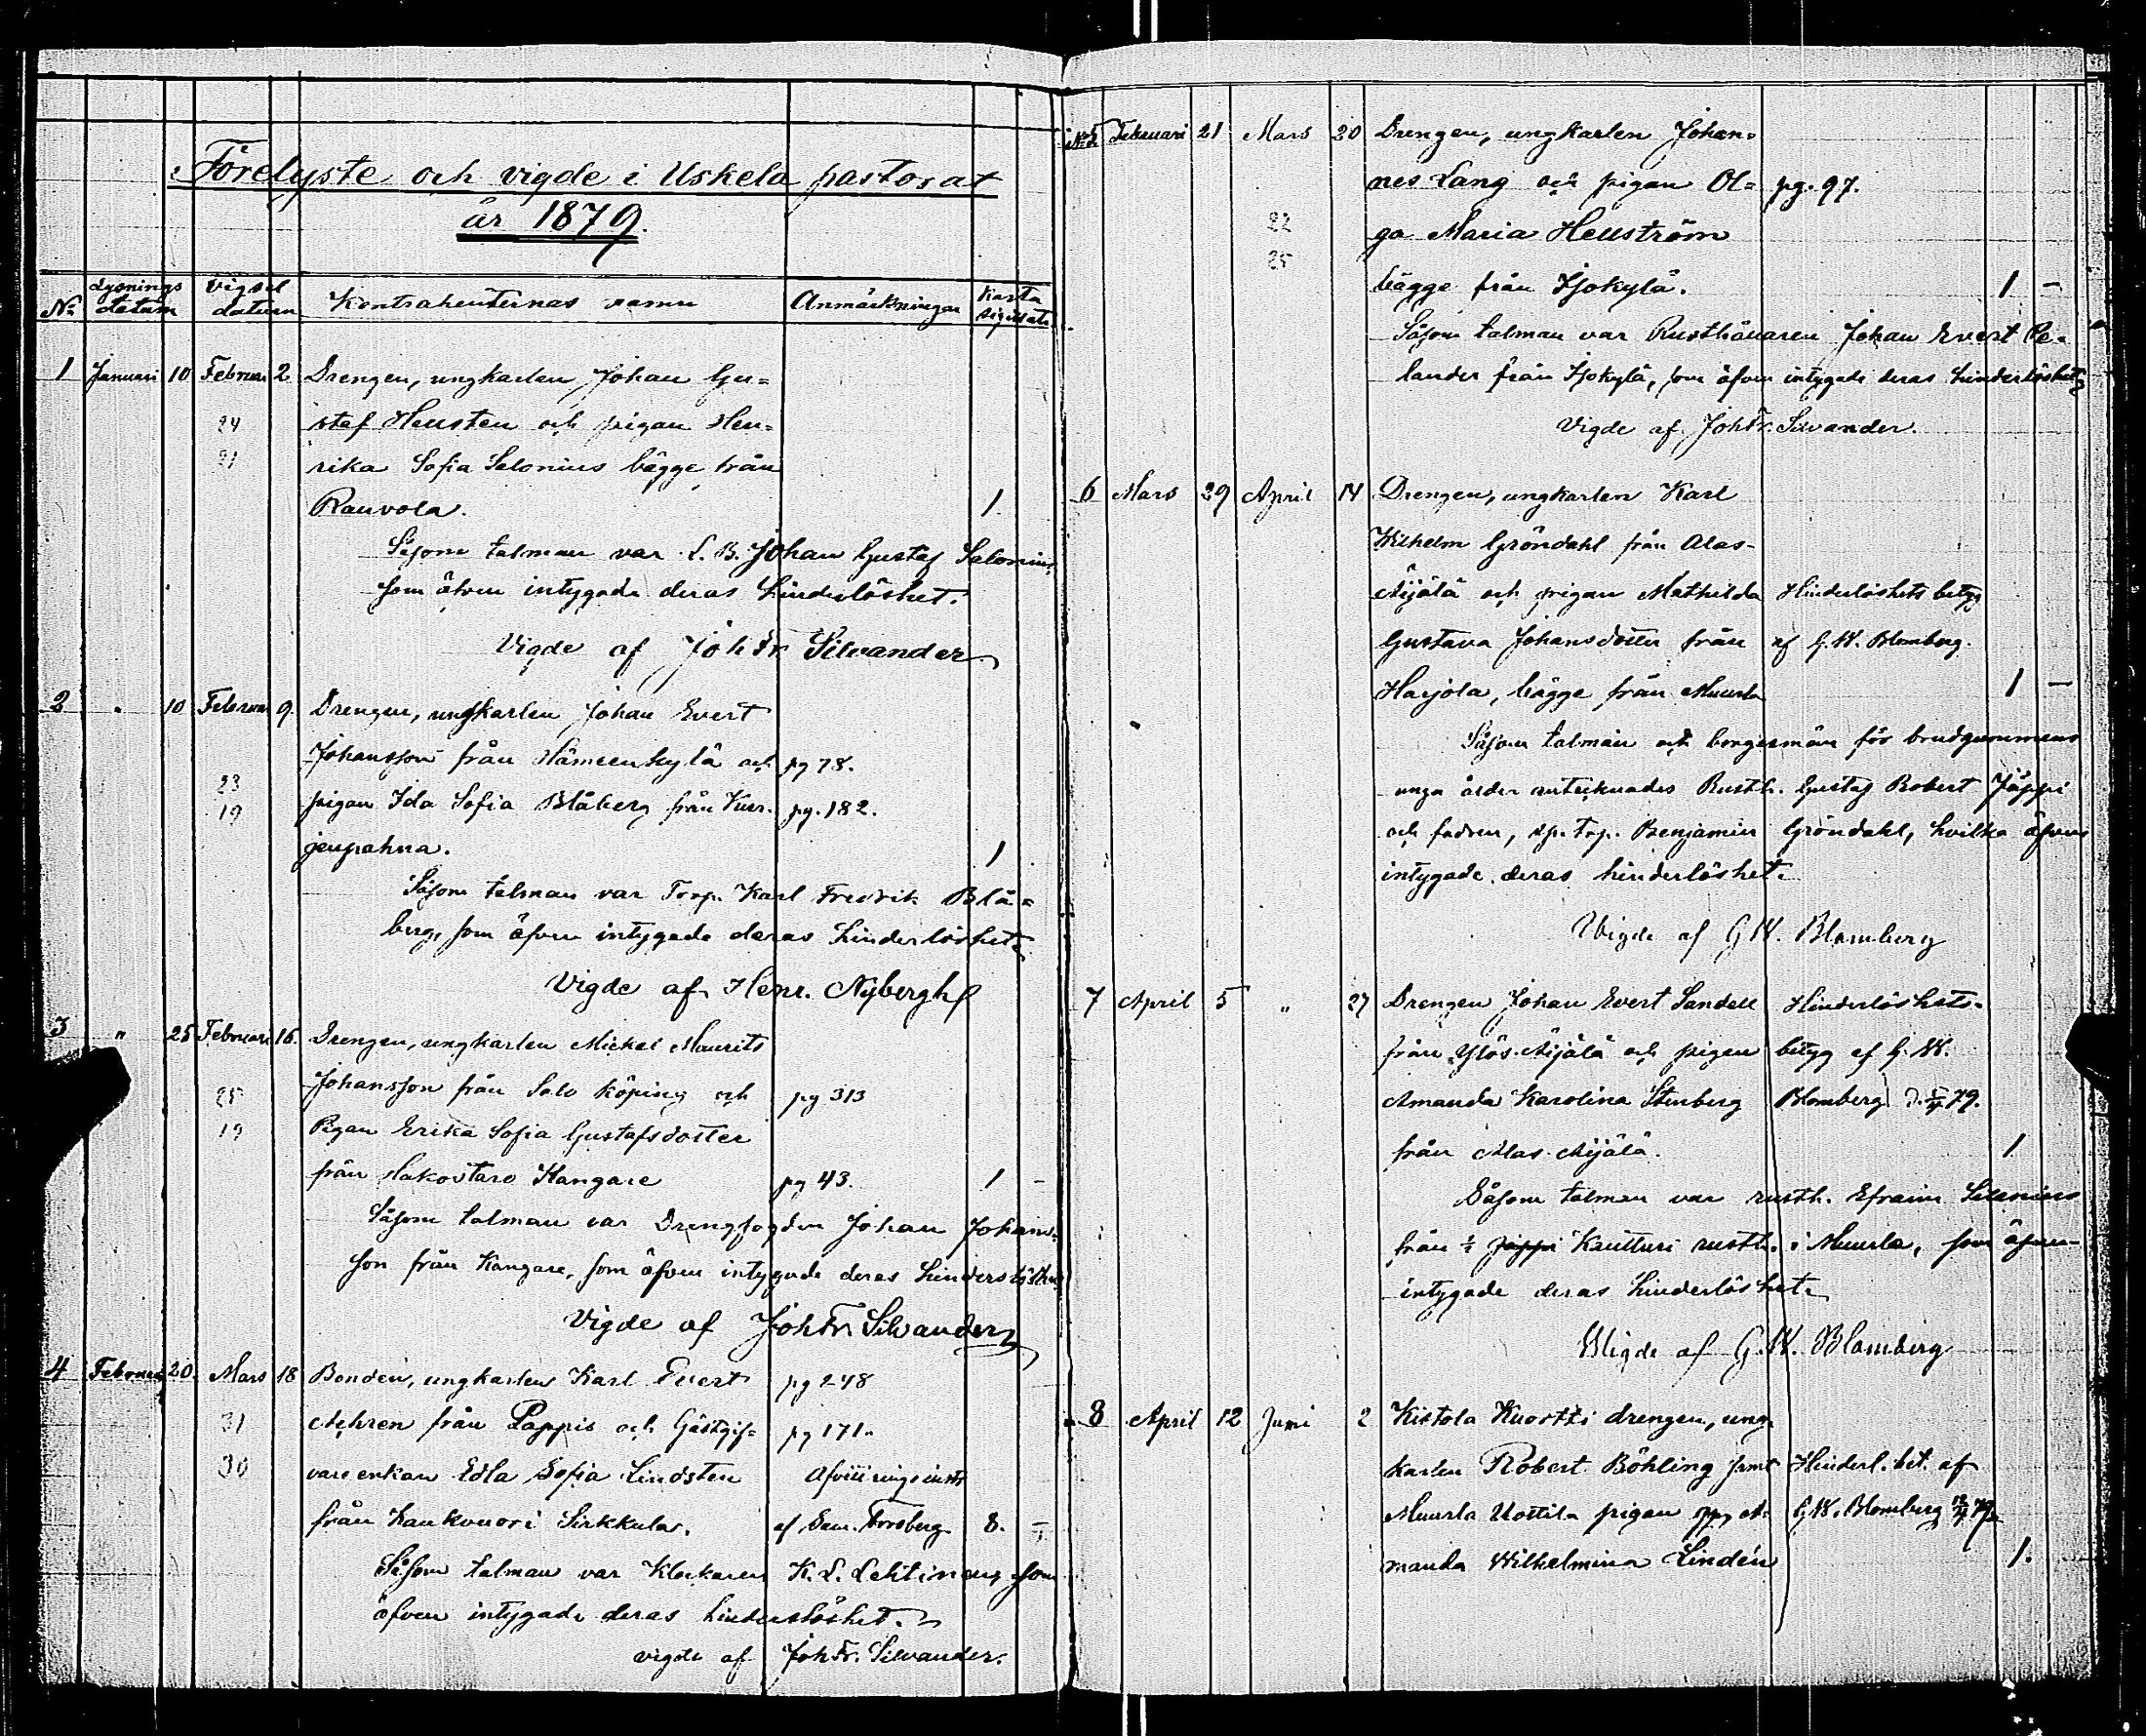 Förelyste och vigde i Uskela pastorat
år 1879.
No Lysnings datum Vigsel datum Kontrahenternas namn Anmärkningar Kasta
1 Januari 10 Februari 2 Drengen, ungkarlen Johan Gu=
24 staf Hellsten och pigan Hen=
21 rika Sofia Salonius bägge från
Rauvola. 1.
Såsom talman var L. B. Johan Gustaf Salonius,
som äfven intygade deras hinderlöshet.
Vigde af Joh Fr. Silvander
2 " 10 Februari 9. Drengen, ungkarlen Johan Evert
Johansson från Hämeenkylä och pg 78.
23
19 pigan Ida Sofia Blåberg från Vuor. pg. 182.
jenpahna. 1
Såsom talman var Torp. Karl Fredrik Blå=
berg, som äfven intygade deras hinderlöshet
Vigde af Henr. Nybergh
3 " 25 Februari 16. Drengen, ungkarlen Mickel Maurits
25 Johansson från Salo köping och pg 313
19 Pigan Erika Sofia Gustafsdotter
från Hakostaro Kangare pg 43. 1 -
Såsom talman var Drengfogden Johan Johans=
son från Kangare, som äfven intygade deras hinderslöshet
Vigde af Joh Fr. Silvander
4 Februari 20. Mars 18 Bonden, ungkarlen Karl Evert pg 248
31 Aehren från Pappis och Gästgif= pg 171.
30 vare enkan Edla Sofia Lindsten
från Kaukvuori Sirkkula. af Sam. Forsberg 8. -
Såsom talman var Klockaren K. L. Lehtinen, som
äfven intygade deras hinderslöshet.
vigde af Joh Fr. Silvander.
No 5 Februari 21 Mars 20 Drengen, ungkarlen Johan=
nes Lang och pigan Ol= pg. 97.
22 ga Maria Hellström
25
bägge från Isokylä. 1 -
Såsom talman var Rusthållaren Johan Evert
lander från Isokylä, som äfven intygade deras hinderlöshet
Vigde af Joh Fr. Silvander.
6 Mars 29 April 14 Drengen, ungkarlen Karl
Wilhelm Gröndahl från Alas-
Äijälä och pigan Mathilda Hinderlöshets betyg
Gustava Johansdotter från af G. W. Blomberg.
Harjola, bägge från Muurla 1 -
Såsom talman och borgesmän för brudgummens
unga ålder antecknades Rusth. Gustaf Robert Jäppi
och fadren, sp. Torp. Benjamin Gröndahl, hvilka äfven
intygade deras hinderlöshet.
Wigde af G W. Blomberg
7 April 5 " 27 Drengen Johan Evert Sandell Hinderlöshets-
från Ylös-Äijälä och pigan betyg af G. W.
Amanda Karolina Stenberg Blomberg d. 5/4 79.
från Alas-Äijälä. 1
Såsom talman var rusth. Efraim
från ½ Jäppi Kruttusi rusth. i Muurla, som äfven
intygade deras hinderlöshet
Wigde af G. W. Blomberg
8 April 12 Juni 2 Kistola Kuortti drengen, ung
karlen Robert Böhling samt Hinderl. bet. af
Muurla Uostila pigan A= G. W. Blomberg 12/4 79
manda Wilhelmina Lindén 1.